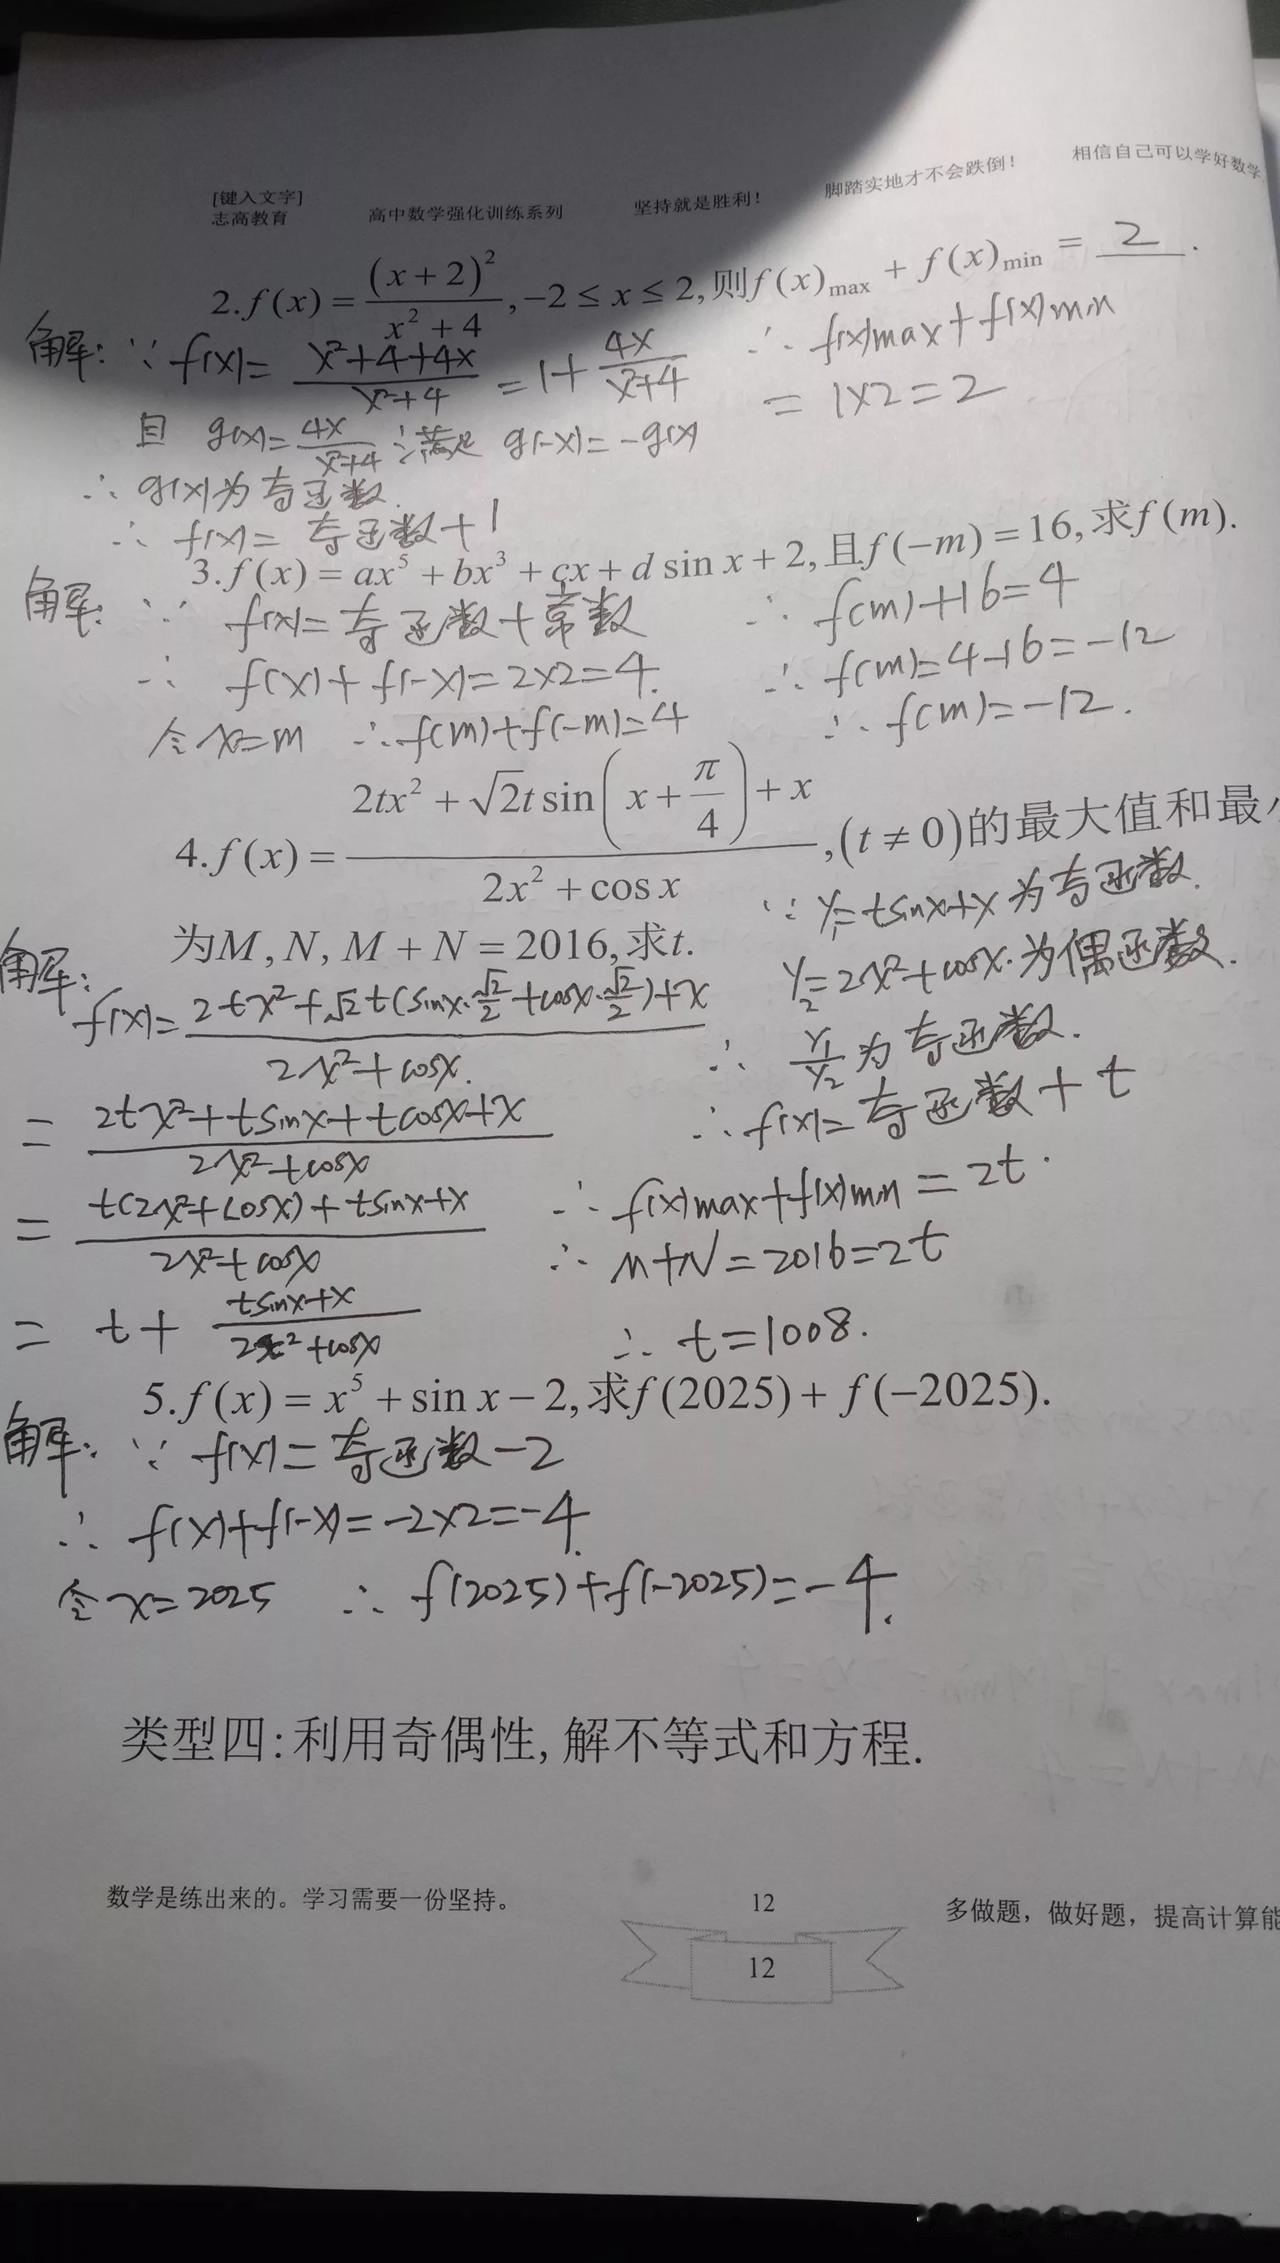 [键入文字]
志高教育 高中数学强化训练系列 坚持就是胜利! 脚踏实地才不会跌倒! 相信自己可以学好数学
2.f(x)=(x+2)²/(x²+4),-2≤x≤2,则f(x)max+f(x)min=2.
解:∵f(x)=(x²+4+4x)/(x²+4)=1+4x/(x²+4)
且g(x)=4x/(x²+4)满足g(-x)=-g(x)
∴g(x)为奇函数.
∴f(x)=奇函数+1
∴f(x)max+f(x)min
=1×2=2
3.f(x)=ax⁵+bx³+cx+d sin x+2,且f(-m)=16,求f(m).
解:∵f(x)=奇函数+常数
∴f(x)+f(-x)=2×2=4.
令x=m ∴f(m)+f(-m)=4
∴f(m)+16=4
∴f(m)=4-16=-12
∴f(m)=-12.
4.f(x)=(2tx²+√2t sin(x+π/4)+x)/(2x²+cos x),(t≠0)的最大值和最
为M,N,M+N=2016,求t.
解:
f(x)=(2tx²+√2t(sinx·√2/2+cosx·√2/2)+x)/(2x²+cosx).
=(2tx²+tsinx+tcosx+x)/(2x²+cosx)
=(t(2x²+cosx)+tsinx+x)/(2x²+cosx)
=t+(tsinx+x)/(2x²+cosx)
∵y₁=tsinx+x为奇函数.
y₂=2x²+cosx.为偶函数.
∴y₁/y₂为奇函数.
∴f(x)=奇函数+t
∴f(x)max+f(x)min=2t.
∴M+N=2016=2t
∴t=1008.
5.f(x)=x⁵+sin x-2,求f(2025)+f(-2025).
解:∵f(x)=奇函数-2
∴f(x)+f(-x)=-2×2=-4.
令x=2025 ∴f(2025)+f(-2025)=-4.
类型四:利用奇偶性,解不等式和方程.
数学是练出来的。学习需要一份坚持。 12 多做题，做好题，提高计算能
12